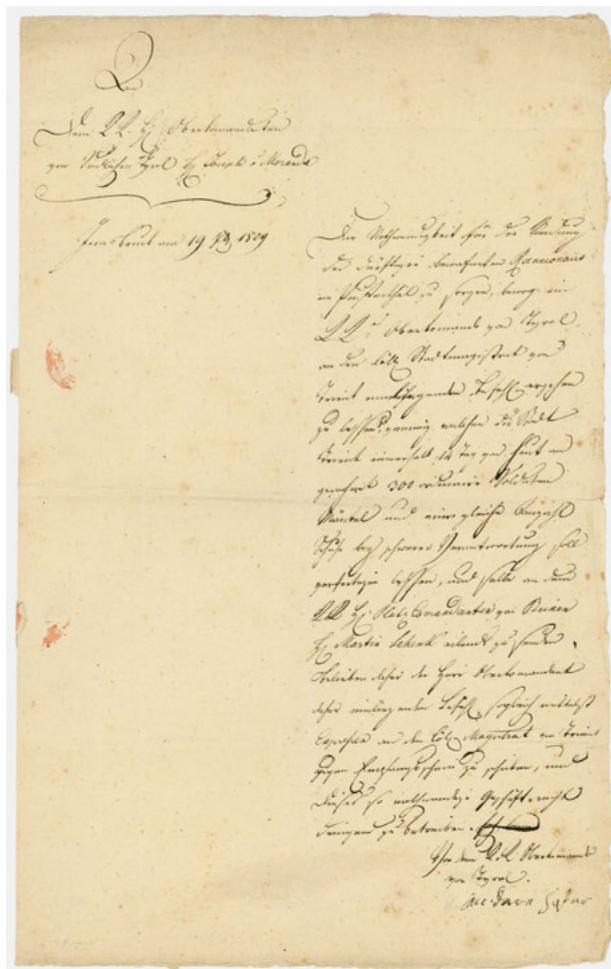 An
Dem KK. H. Oberkomandanten
von Südlichen Tyrol H. Joseph v Morandel
Innsbruck am 19 8br. 1809
Die Nothwendigkeit für die Kleidung
der dürftigen bewafneten Ranzionairs
im Pusterthal zu sorgen, bewog ein
KK. Oberkomando von Tyrol
an den löbl. Stadtmagistrat von
Trient einen Befehl ergehen
zu lassen, welchen die Stadt
Trient innerhalb 14 Tag von heut an
300 ordinaire Soldaten
Mäntel und eine gleiche Anzahl
Schuhe bey schwerer Verantwortung soll
verfertigen lassen, und selbe an dem
KK H. Platz Comandanten von Brixen
H. Martin Schenk eilends zu senden.
Belieben daher der Herr Oberkomandant
daher einliegenden Befehl sogleich mittelst
an den löbl. Magistrat in Trient
gegen Empfangsschein zu schicken, und
dieses so nothwendige Geschäft recht
dringend zu betreiben.
Von dem K.K. Oberkomando
von Tyrol.